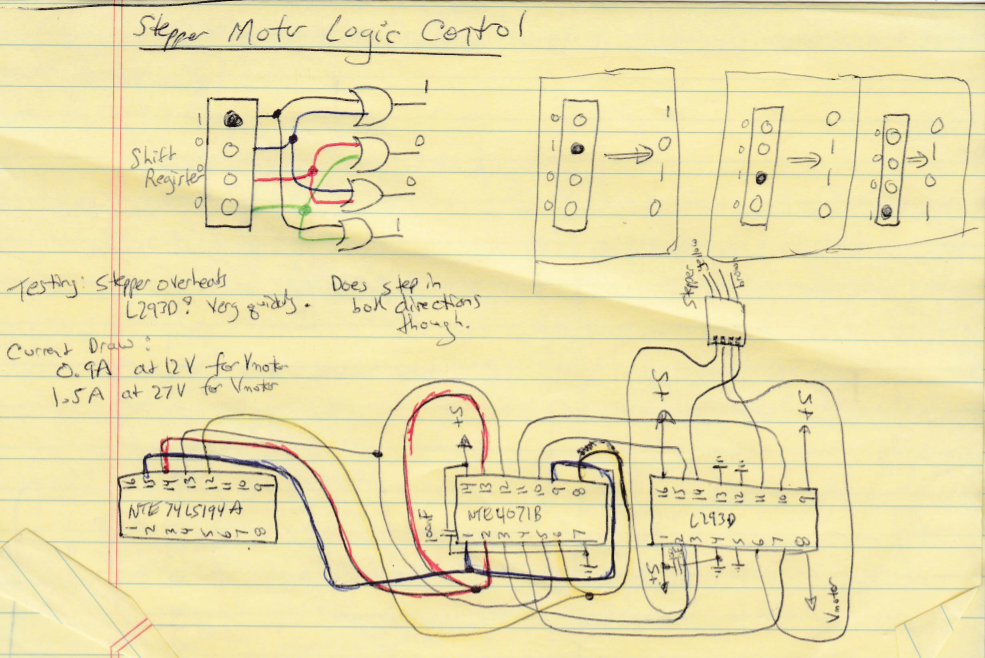 Stepper Motor Logic Control
Shift
Register
1
0
0
0
1
0
0
1
0
1
0
0
1
0
1
0
0
0
1
0
0
1
1
0
0
0
0
1
0
1
0
1
Testing: Stepper overheats
L293D? Very quickly.
Does step in
both directions
though.
Current Draw:
0.9A at 12V for Vmotor
1.5A at 27V for Vmotor
Stepper
yellow
+5
+5
+5
16 15 14 13 12 11 10 9
NTE74LS194A
1 2 3 4 5 6 7 8
100nF
14 13 12 11 10 9 8
NTE4071B
1 2 3 4 5 6 7
16 15 14 13 12 11 10 9
L293D
1 2 3 4 5 6 7 8
+5
Vmotor